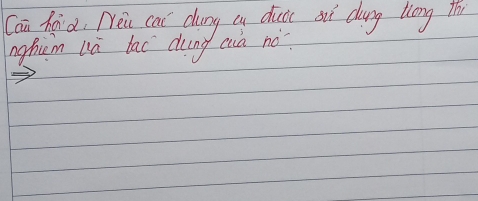 Câu hỏi 2: Nêu các dụng cụ được sử dụng trong thí
nghiệm và tác dụng của nó.
⇒